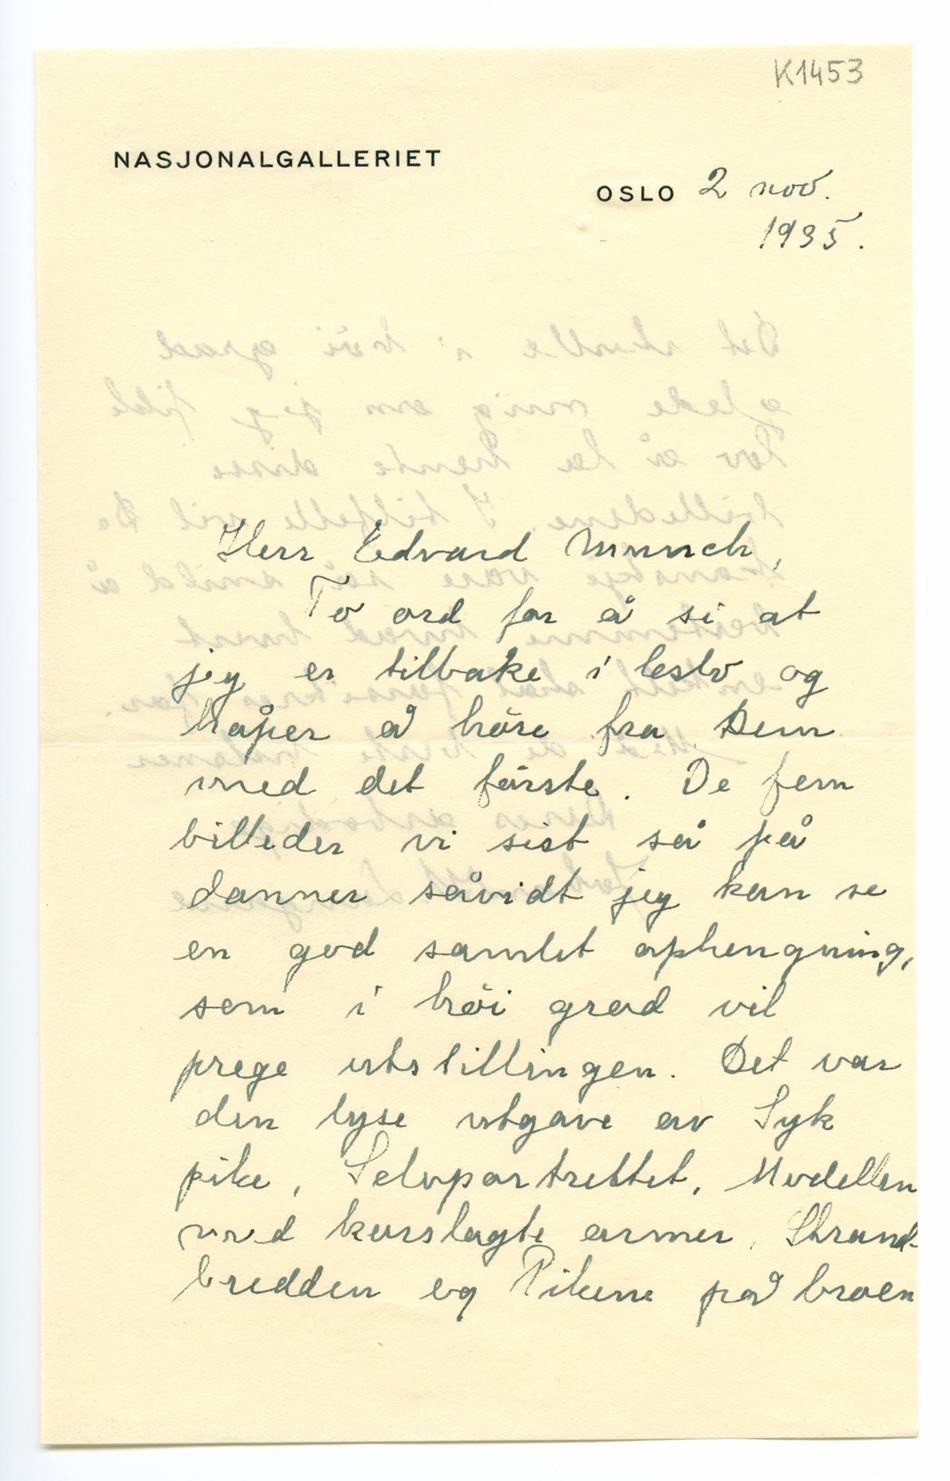 K1453
NASJONALGALLERIET
OSLO 2 nov.
1935.
Herr Edvard Munch,
To ord for å si at
jeg er tilbake i Oslo og
håper å höre fra Dem
med det förste. De fem
billeder vi sist så på
danner såvidt jeg kan se
en god samlet ophengning,
som i höi grad vil
prege utstillingen. Det var
den lyse utgave av Syk
pike, Selvportrettet, Modellen
med korslagte armer, Strand-
bredden og Pikene på broen